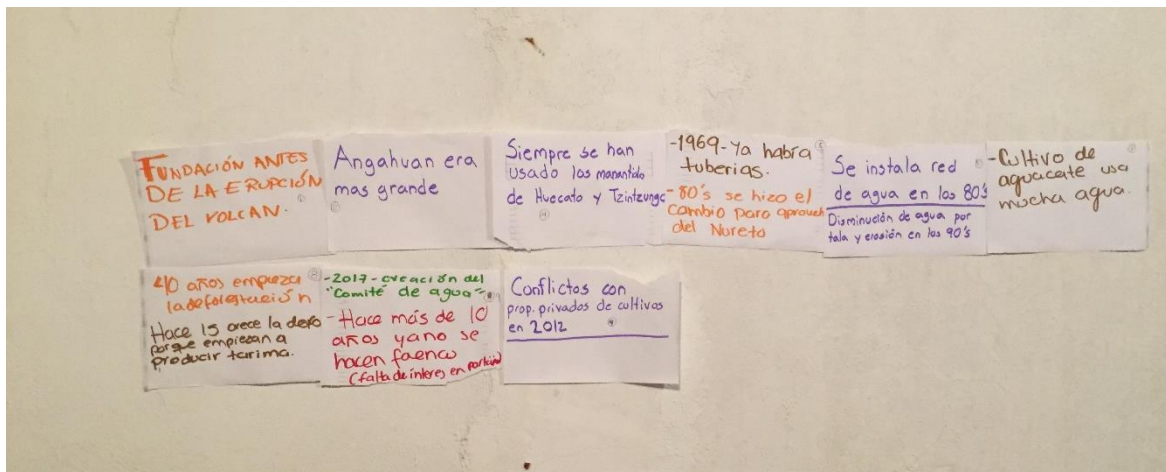 FUNDACIÓN ANTES
DE LA ERUPCIÓN
DEL VOLCAN.
Angahuan era
mas grande
Siempre se han
usado los
de Huecato y
-1969-Ya había
tuberias.
-80's se hizo el
Cambio para
del Nureto
Se instala red
de agua en los 80's
Disminución de agua por
tala y erosión en los 90's
-Cultivo de
aguacate usa
mucha agua.
40 años empieza
la deforestación
Hace 15 crece la defo
porque empiezan a
producir tarima.
-2017-creación del
"Comité de agua"
-Hace más de 10
años ya no se
hacen
(falta de interes en
Conflictos con
prop. privados de cultivos
en 2012